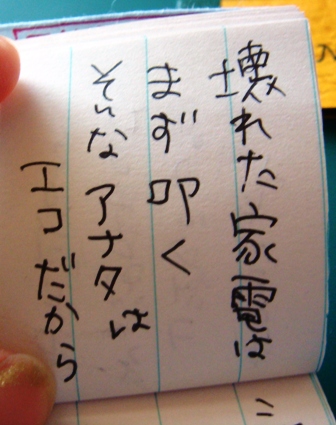 壊れた家電は
まず叩く
そんなアナタは
エコだから